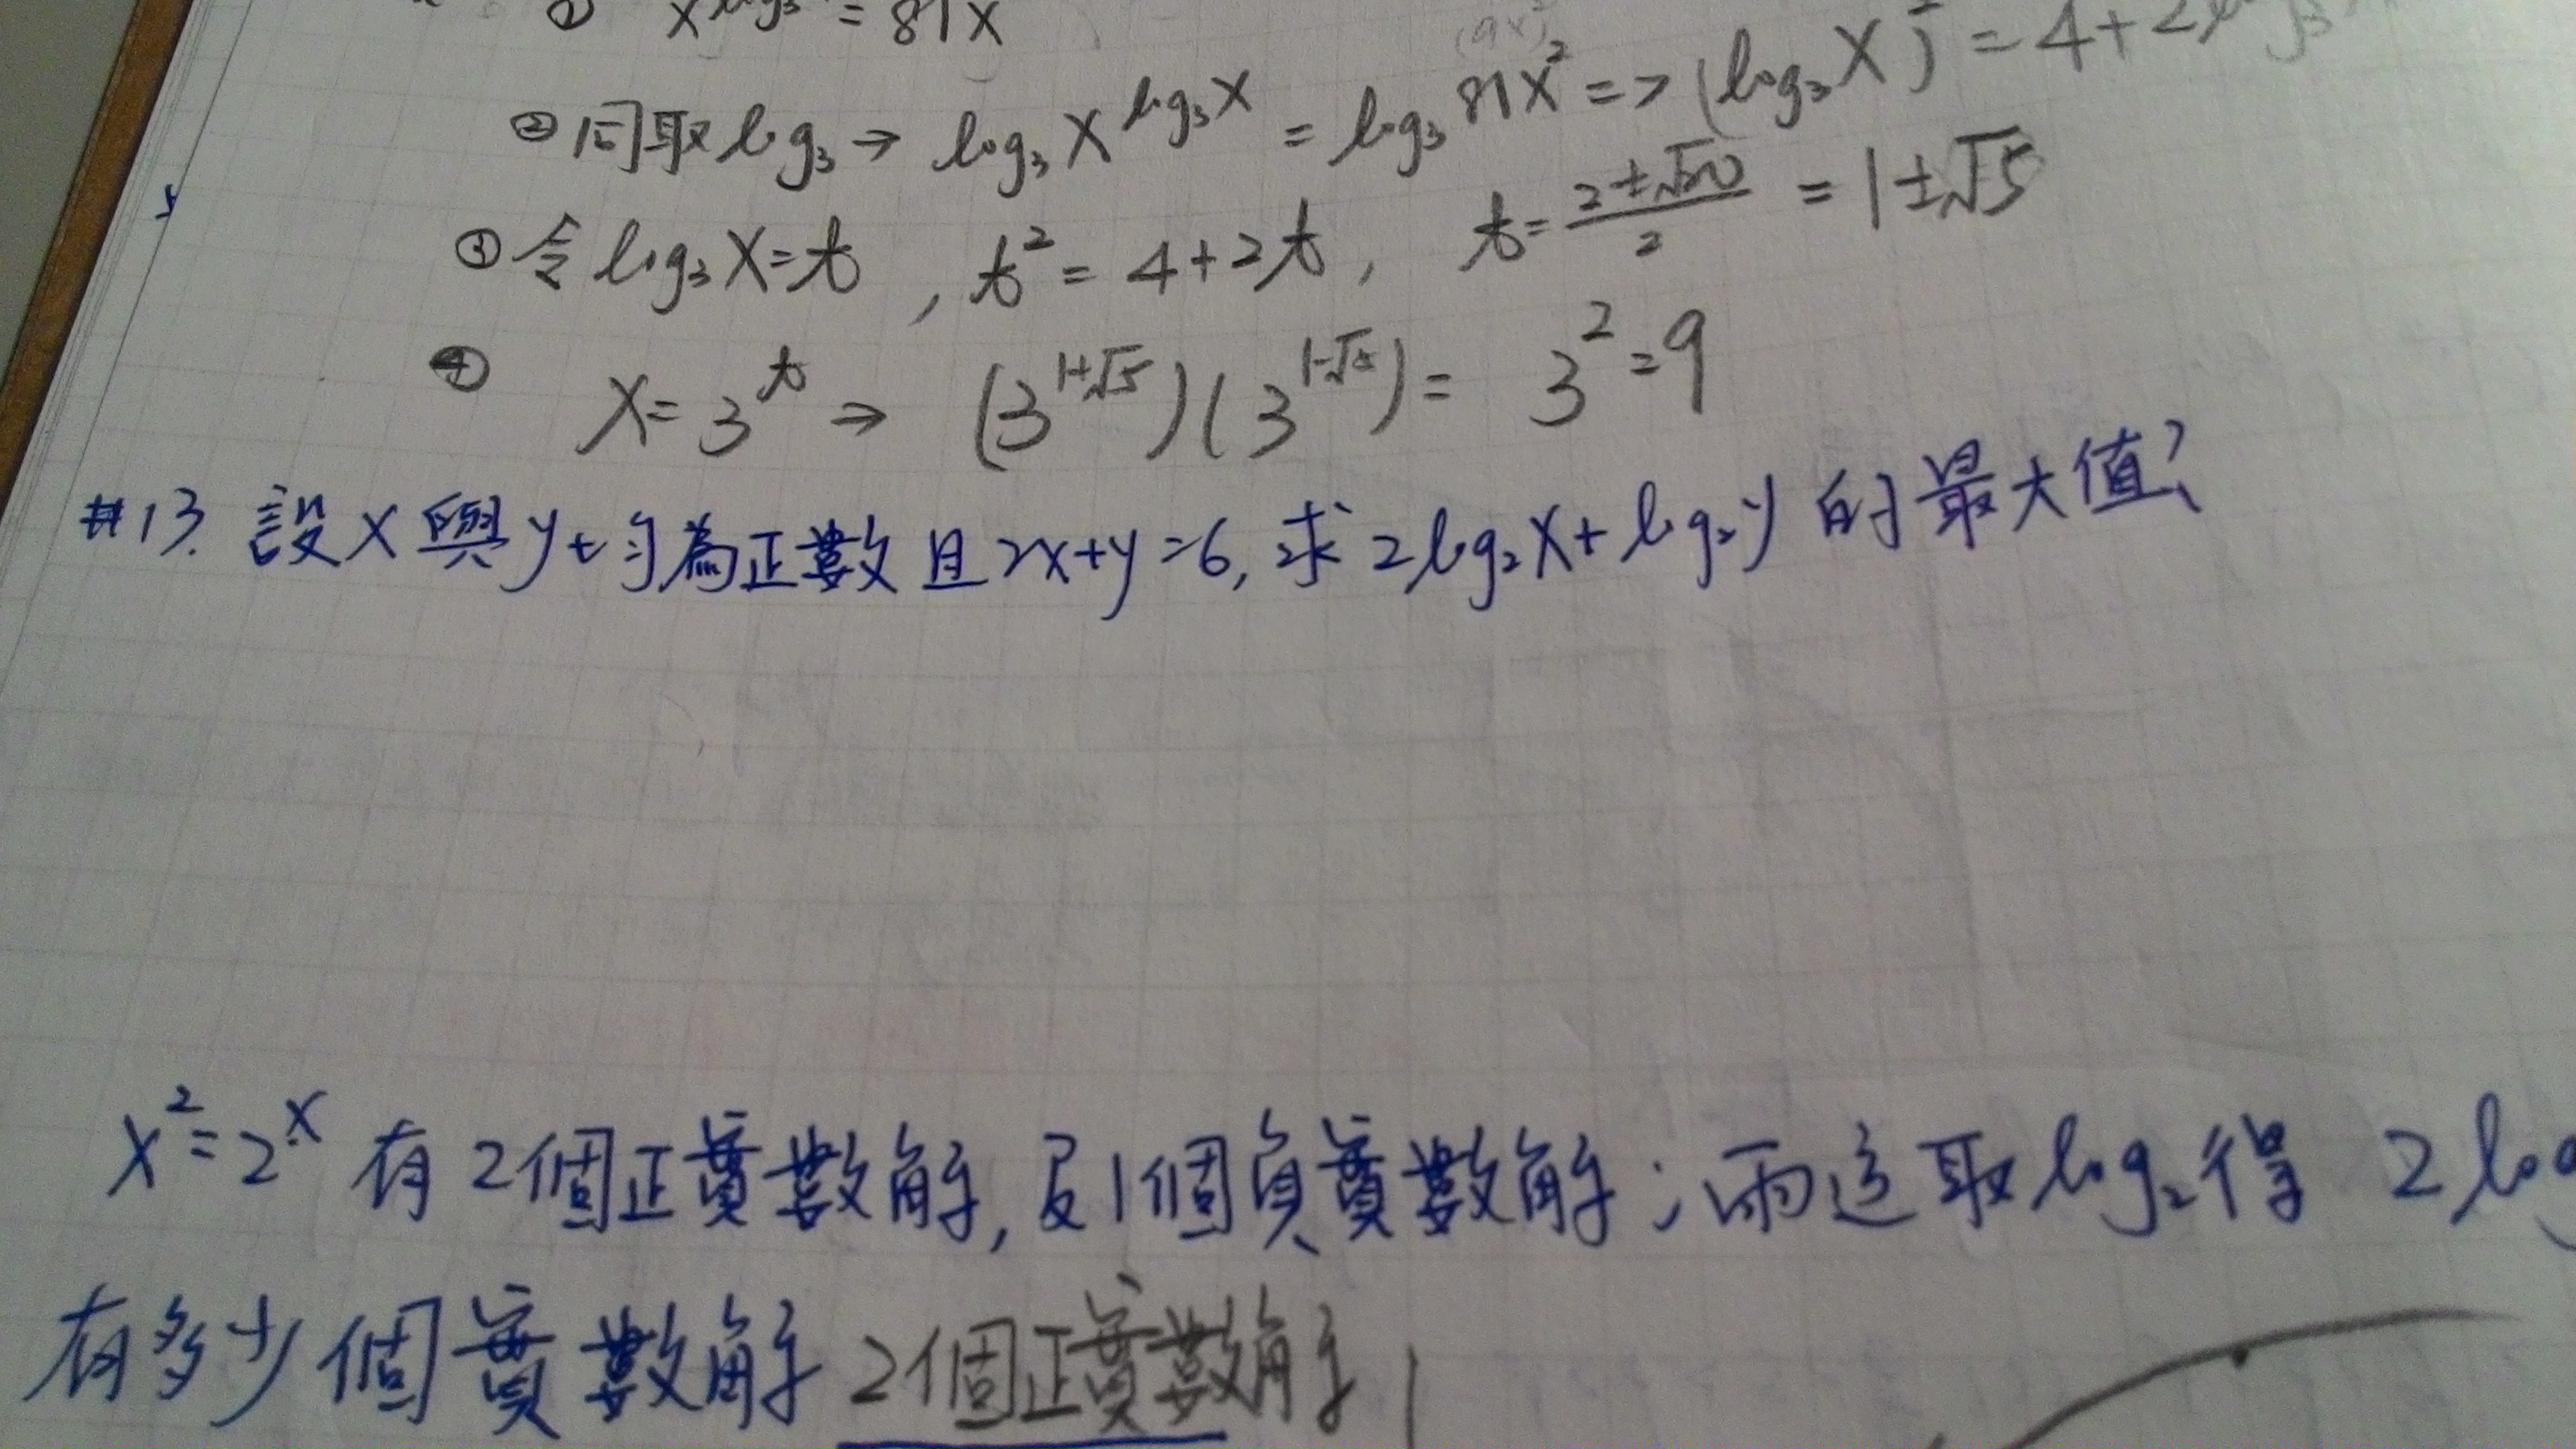 ① x^log₃ = 81x
② 同取log₃ → log₃ x^(log₃x) = log₃ 81x² => (log₃ x)² = 4+2log₃
③ 令 log₃ x = t , t² = 4+2t , t = (2±√20)/2 = 1±√5
④ x = 3^t → (3^(1+√5))(3^(1-√5)) = 3² = 9
#13. 設x與y均為正數且2x+y=6, 求2log₂x+log₂y的最大值?
x²=2^x 有2個正實數解, 及1個負實數解; 兩邊取log₂得 2log
有多少個實數解 2個正實數解